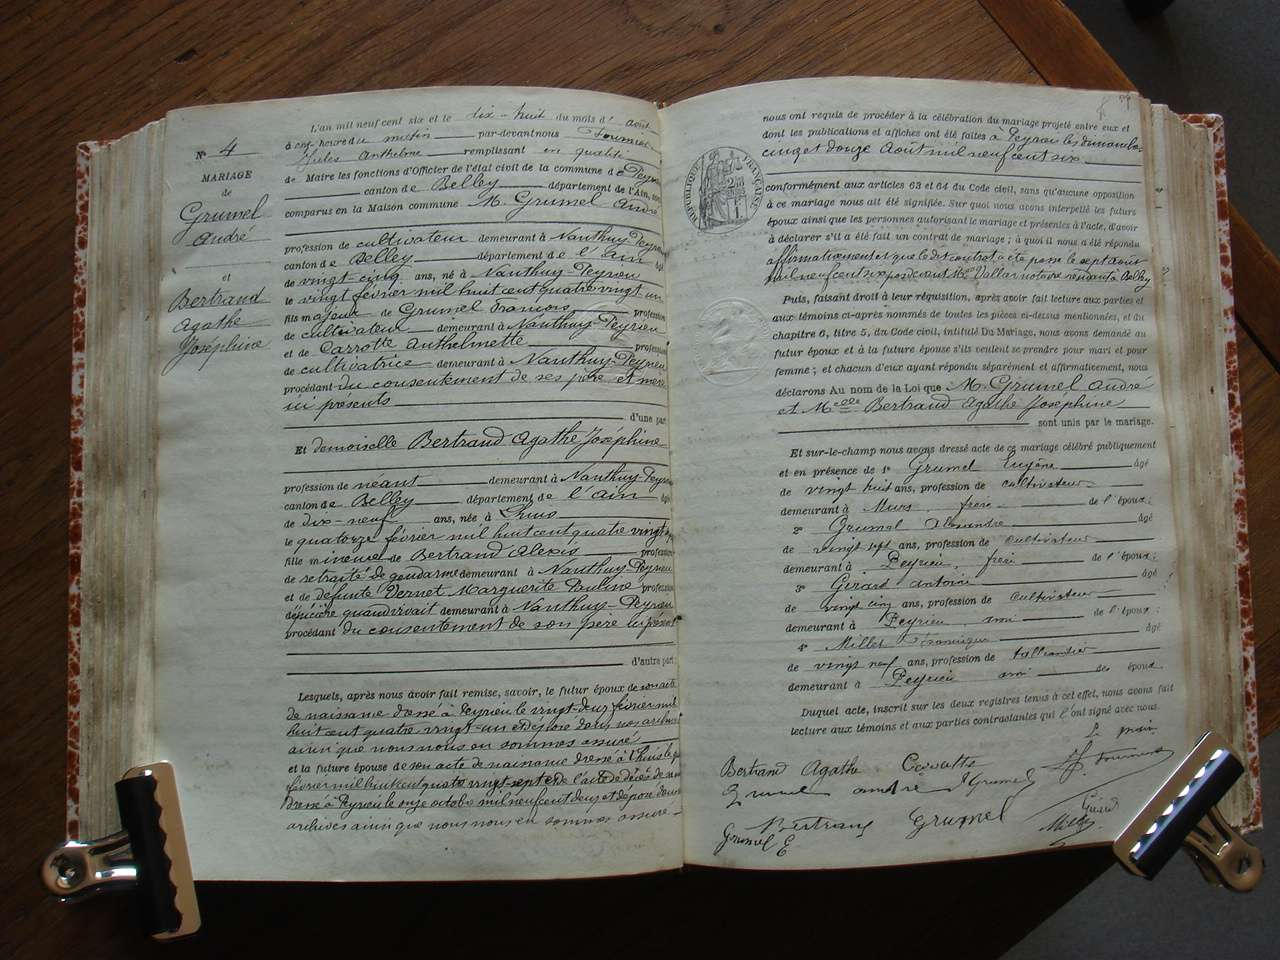 N° 4
MARIAGE
de
Grumel
André
et
Bertrand
Agathe
Joséphine
L'an mil neuf cent six et le dix-huit du mois d'août
à onze heures du matin par-devant nous Fournier
Jules Anthelme remplissant en qualité
de Maire les fonctions d'Officier de l'état civil de la commune de Peyrieu
canton de Belley département de l'Ain, sont
comparus en la Maison commune M. Grumel André
profession de cultivateur demeurant à Nanthuy-Peyrieu
canton de Belley département de l'ain âgé
de vingt-cinq ans, né à Nanthuy-Peyrieu
le vingt février mil huit cent quatre vingt un
fils majeur de Grumel François profession
de cultivateur demeurant à Nanthuy-Peyrieu
et de Carrotte Anthelmette profession
de cultivatrice demeurant à Nanthuy-Peyrieu
procédant du consentement de ses père et mère
ici présents
d'une part
Et demoiselle Bertrand Agathe Joséphine
profession de néant demeurant à Nanthuy-Peyrieu
canton de Belley département de l'ain âgée
de dix-neuf ans, née à Lhuis
le quatorze février mil huit cent quatre vingt
fille mineure de Bertrand Alexis profession
de retraité de gendarme demeurant à Nanthuy-Peyrieu
et de défunte Vernet Marguerite Pauline profession
d'épicière quand vivait demeurant à Nanthuy-Peyrieu
procédant du consentement de son père ici présent
d'autre part;
Lesquels, après nous avoir fait remise, savoir, le futur époux de son acte
de naissance dressé à Peyrieu le vingt-deux février mil
huit cent quatre vingt-un et déposé dans nos archives
ainsi que nous nous en sommes assuré
et la future épouse de son acte de naissance dressé à Lhuis le
février mil huit cent quatre vingt sept et de l'acte de décès de sa
dressé à Peyrieu le onze octobre mil neuf cent deux et déposé dans
archives ainsi que nous nous en sommes assuré
nous ont requis de procéder à la célébration du mariage projeté entre eux et
dont les publications et affiches ont été faites à Peyrieu les dimanches
cinq et douze Août mil neuf cent six
RÉPUBLIQUE FRANÇAISE
conformément aux articles 63 et 64 du Code civil, sans qu'aucune opposition
à ce mariage nous ait été signifiée. Sur quoi nous avons interpellé les futurs
époux ainsi que les personnes autorisant le mariage et présentes à l'acte, d'avoir
à déclarer s'il a été fait un contrat de mariage; à quoi il nous a été répondu
affirmativement et que le dit contrat a été passé le sept août
mil neuf cent six pardevant Me Vallar notaire résidant à Belley
Puis, faisant droit à leur réquisition, après avoir fait lecture aux parties et
aux témoins ci-après nommés de toutes les pièces ci-dessus mentionnées, et du
chapitre 6, titre 5, du Code civil, intitulé Du Mariage, nous avons demandé au
futur époux et à la future épouse s'ils veulent se prendre pour mari et pour
femme; et chacun d'eux ayant répondu séparément et affirmativement, nous
déclarons Au nom de la Loi que M. Grumel André
et Melle Bertrand Agathe Joséphine
sont unis par le mariage.
Et sur-le-champ nous avons dressé acte de ce mariage célébré publiquement
et en présence de 1° Grumel Eugène âgé
de vingt huit ans, profession de cultivateur
demeurant à Murs frère de l'époux;
2° Grumel Alexandre âgé
de vingt sept ans, profession de cultivateur
demeurant à Peyrieu, frère de l'époux;
3° Girard Antoine âgé
de vingt cinq ans, profession de cultivateur
demeurant à Peyrieu ami de l'époux;
4° Millet Dominique âgé
de vingt neuf ans, profession de taillandier
demeurant à Peyrieu ami des époux
Duquel acte, inscrit sur les deux registres tenus à cet effet, nous avons fait
lecture aux témoins et aux parties contractantes qui l'ont signé avec nous.
Bertrand Agathe Carrotte
Grumel andré Grumel J. Fournier
Bertrand Grumel Millet Girard
Grumel E